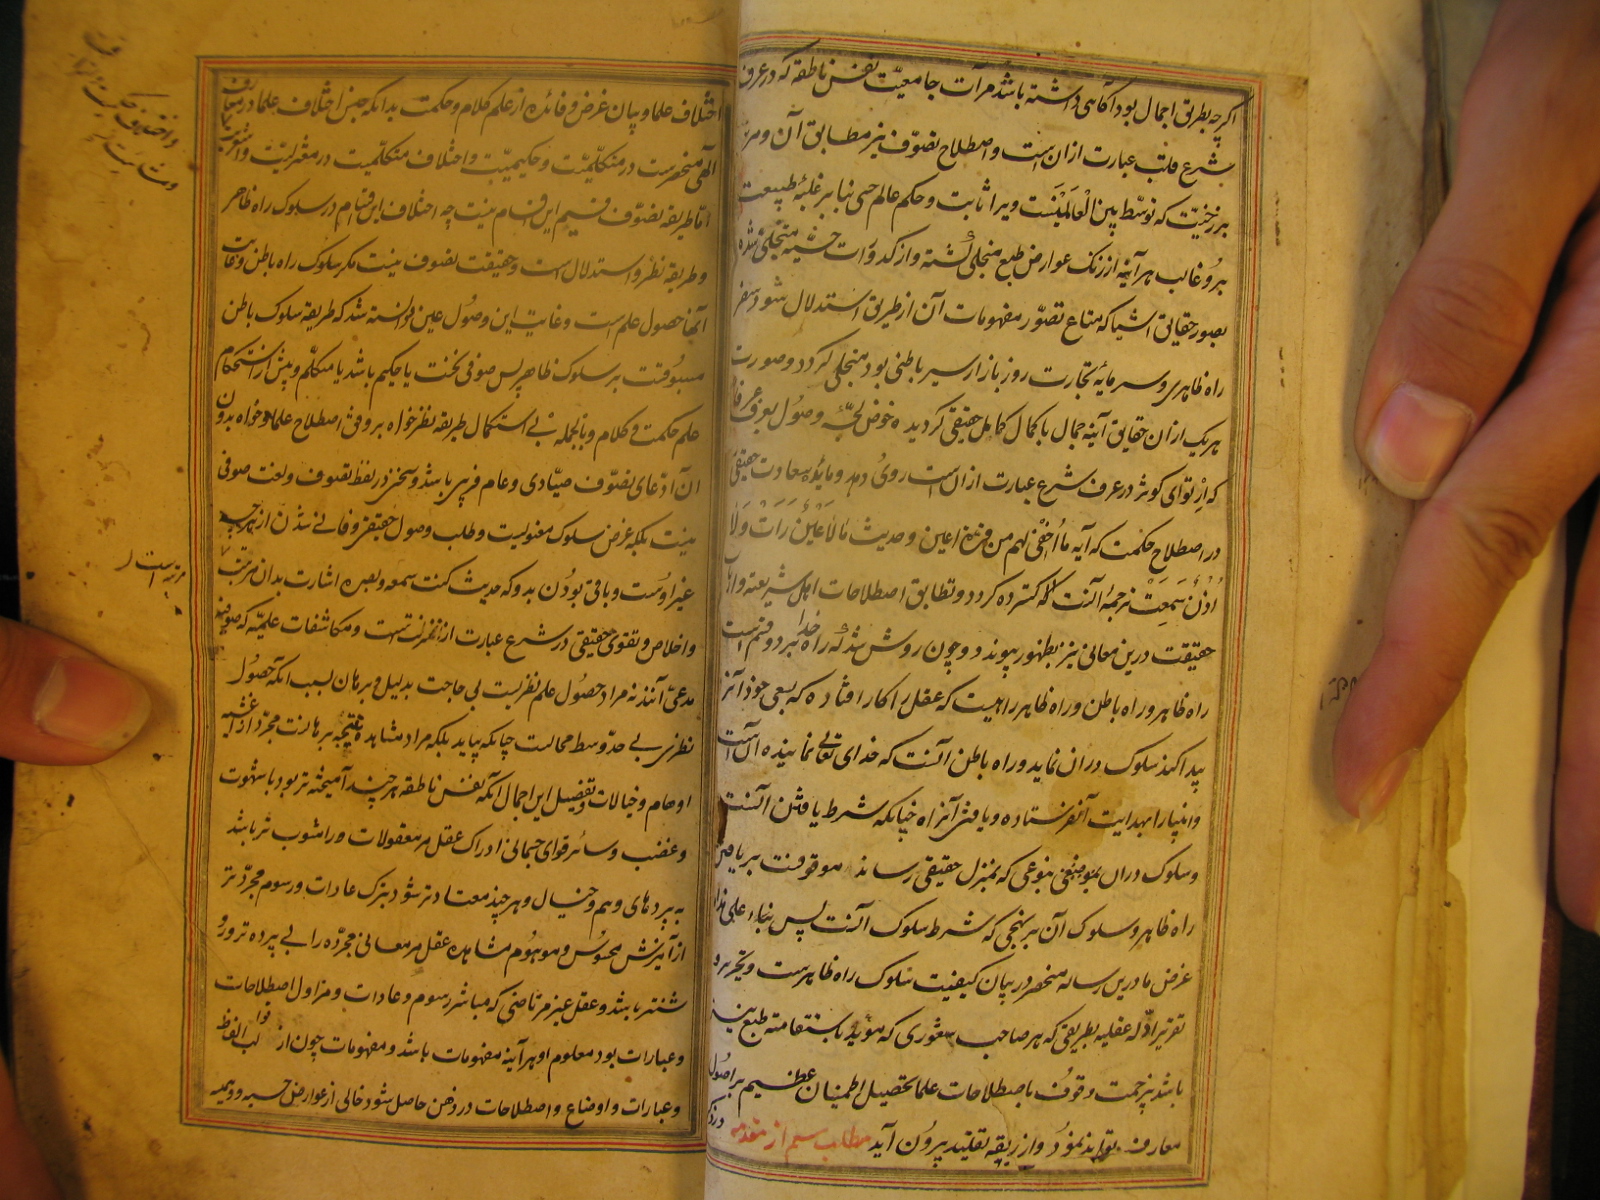 اکرچه بطریق اجمال بود آکاهی داشته باشد مرآت جامعیّت نفس ناطقه که در عرف
شرع قلب عبارت از ان است و اصطلاح تصوّف نیز مطابق آن و مرتبه
برزخیّت که توسّط بین العالمین است ویرا ثابت و حکم عالم حسی بنا بر غلبهٔ طبیعت
برو غالب هر آینه از زنک عوارض طبع منجلی کشته و از کدورات حسّیه متجلّی شده
بصور حقایق اشیا که متاع تصوّر مفهومات آن از طریق استدلال شود و سفر
راه ظاهری و سرمایه تجارت روز بازار سیر باطنی بود متجلی کردد و صورت
هر یک از ان حقایق آینه جمال با کمال کامل حقیقی کردیده خوض لجّه وصول بعرف عرفا
که ارتوای کوثر در عرف شرع عبارت از ان است روی دهد و مایده سعادت حقیقی
در اصطلاح حکمت که آیه ما اُخفی لهم من قرة اعین و حدیث مالا عین رأت ولا
اذن سمعت ترجمهٔ آنست کسترده کردد و تطابق اصطلاحات اهل شریعة و اهل
حقیقت درین معانی نیز بظهور پیوندد و چون روشن شد که راه خدا بر دو قسم است
راه ظاهر و راه باطن و راه ظاهر راهیست که عقل را کار افتاده که بسعی خود آنرا
پیدا کند سلوک در ان نماید و راه باطن آنست که خدای تعالی نماینده آن است
و انبیا را بهدایت آن فرستاده و یافتن آنراه چنانکه شرط یافتن آنست
و سلوک دران بنوعی که بمنزل حقیقی رساند موقوفست بر یافتن
راه ظاهر و سلوک آن بر نهجی که شرط سلوک آنست پس بناء علی هذا
غرض ما درین رساله منحصر در بیان کیفیت سلوک راه ظاهرست و تحریر و
تقریر ادلّه عقلیه بطریقی که هر صاحب شعوری که مؤید باستقامة طبع نیز
باشد بی زحمت وقوف باصطلاحات علما تحصیل اطمینان عظیم بر اصول
معارف تواند نمود و از ربقه تقلید بیرون آید مطلب سیم از مقدمه در ذکر
اختلاف علما و بیان غرض و فائده از علم کلام و حکمت بدانکه چنین اختلاف علما در معارف
آلهی منحصرست در متکلّمیّت و حکیمیّت و اختلاف متکلّمیت در معتزلیّت و اشعریّت
امّا طریقه تصوّف قسیم این اقسام نیست چه اختلاف این اقسام در سلوک راه ظاهر
و طریقه نظر و استدلال است و حقیقت تصوف نیست مکر سلوک راه باطن و غایت
آنها حصول علم است و غایت این وصول عین و دانسته شد که طریقهٔ سلوک باطن
مسبوقست بر سلوک ظاهر پس صوفی نخست یا حکیم باشد یا متکلّم و پیش از استحکام
علم حکمت و کلام و بالجمله بی استکمال طریقه نظر خواه بر وفق اصطلاح علما و خواه بدون
آن ادّعای تصوّف صیّادی و عام فریبی باشد و سخن در لفظ تصوف و لغت صوفی
نیست بلکه غرض سلوک معنویست و طلب وصول حقیقی و فانی شدن از هر چه
غیر اوست و باقی بودن بدو که حدیث کنت سمعه و بصره اشارت بدان مرتبه
و اخلاص و تقوی حقیقی در شرع عبارت از آنمرتبتست و مکاشفات علمیّه که صوفیه
مدعیّ آنند نه مراد حصول علم نظریست بی حاجت بدلیل و برهان بسبب آنکه حصول
نظری بی حدّ وسط محالست چنانکه بیاید بلکه مراد مشاهده نتیجه برهانست مجرّد از اغشیه
اوهام و خیالات و تفصیل این اجمال آنکه نفس ناطقه هر چند آمیخته تر بود با شهوت
و غضب و سائر قوای جسمانی ادراک عقل مر معقولات را مشوب تر باشد
به پرده های وهم و خیال و هر چند معتادتر شود بترک عادات و رسوم مجرّدتر
از آمیزش محسوس و موهوم مشاهده عقل مر معانی مجرّده را بی پرده تر و روشنتر
شنتر باشد و عقل غیر مرتاضی که مباشر رسوم و عادات و مزاول اصطلاحات
و عبارات بود معلوم او هر آینه مفهومات باشد و مفهومات چون از قوالب الفاظ
و عبارات و اوضاع و اصطلاحات در ذهن حاصل شود خالی از عوارض حسیه و وهمیه
مرتبه است